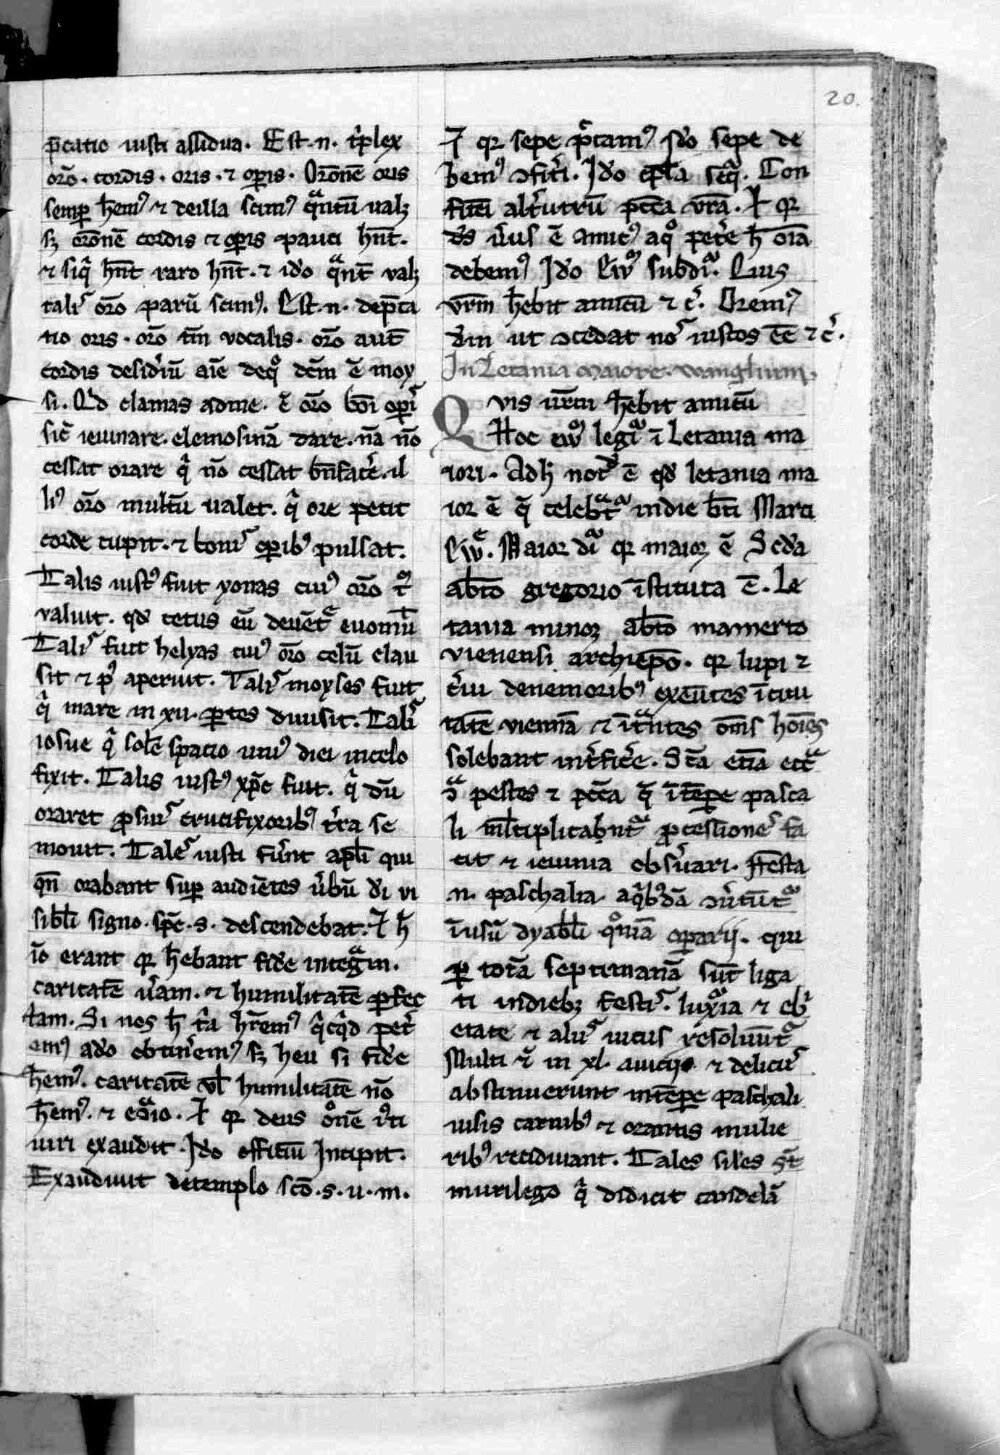 20.
p̄catio iusti assidua. Est .n. t͛plex
or̄o. cordis. oris. ⁊ oꝑis. Or̄onē oris
semꝑ hēmꝰ ⁊ de illa scimꝰ qͣntū ualꝫ
sꝫ or̄onē cordis ⁊ oꝑis pauci hn̄t.
⁊ siq̄ hn̄t raro hn̄t. ⁊ ido qͣnt̄ valꝫ
talis or̄o parū scimꝰ. Est .n. dep̄ca
tio oris. or̄o tm̄ vocalis. or̄o aut̄
cordis desid͛iū aīe de qͦ dc̄m ē moy
si. Qd clamas ad me. ē or̄o boni oꝑis
sic̄ ieiunare. elemosinā dare. nā nō
cessat orare qͥ nō cessat bn̄fac̄e. il
liꝰ or̄o multū ualet. qͥ ore petit
corde cupit. ⁊ bonis oꝑibꝰ pulsat.
Talis iustꝰ fuit yonas cuiꝰ or̄o
valuit. qd cetus eū
Talis fuit helyas cuiꝰ or̄o celū clau
sit ⁊ pꝰ aperuit. Talis moyses fuit
qͥ mare in xii. ꝑtes diuisit. Talis
iosue qͥ solē spacio uniꝰ diei in celo
fixit. Talis iustꝰ xp̄c fuit. qͥ dū
oraret ꝓ suis crucifixoribꝰ t͛ra se
mouit. Tales iusti fuer̄nt apl̄i qui
qn̄ orabant suꝑ audiētes u͛bū di vi
sibl̄i signo. spc̄ .s. descendebat. ⁊ h̄
iō erant qꝛ h̄ebant fidē integͣm.
caritatē u͛am. ⁊ humilitatē ꝑfec
tam. Si nos h̄ t͛a hr̄emꝰ qͥcqͥd pet͛
emꝰ a do obtin͛emꝰ sꝫ heu si fidē
hēmꝰ. caritatē ul̄ humilitatē nō
hēmꝰ. ⁊ eͦͣio. ⁊ qꝛ deus or̄onē
uiri exaudit. Ido officiū Incipit.
Exaudiuit de templo scō .s. u. m.
⁊ qꝛ sepe p̄ccamꝰ ido sepe de
bemꝰ ꝯfit͛i. Ido ep̄l̄a seqͥ. Con
fitēi alt͛utrū pcc̄a vr̄a. ⁊ qꝛ
ds u͛us ē amicꝰ a qͦ pet͛e h̄ oīa
debemꝰ Ido euꝰ subdiͬ. Quis
vr̄m h̄ebit amicū ⁊ c͛. Oremꝰ
dm̄ ut ꝯcedat nos iustos eē ⁊ c͛.
In Letania maiore. ewanglium.
Quis ur̄m h̄ebit amicū
Hoc ewͦ legiͬ ī Letania ma
iori. Ad h̄ notͩ ē qd letania ma
ior ē q̄ celebͣtͬ in die bt̄i Marci
Ewē. Maior diͬ qꝛ maior ē Sc̄da
ab̄to gregorio īstituta ē. Le
tania minor ab̄to mamerto
vienensi archiep̄o. qꝛ lupi ⁊
c͛ui de nemoribꝰ exeūtes ī ciui
tatē viennā ⁊ ītͣntes oms̄ hoīes
solebant int͛fic͛e. Sc̄a etiā
pestes ⁊ pcc̄a q̄ ī tēꝑe pasca
li ml̄tiplicabant ꝓcessiones fa
cit ⁊ ieiunia obs͛uari. Festa
.n. paschalia a qͥbꝰdā
ī usū dyabl̄i qͦniā oparii. qui
ꝑ totā septimanā sūt liga
ti in diebꝫ festis. luxͥͣia ⁊ eb͛
etate ⁊ aliis uiciis resoluūtͬ
Multi
abstinuerunt in tēꝑe paschali
uisis carnibꝰ ⁊ orantis mulie
ribꝰ recidiuant. Tales siles sūt
murilego qͥ didicit candelā